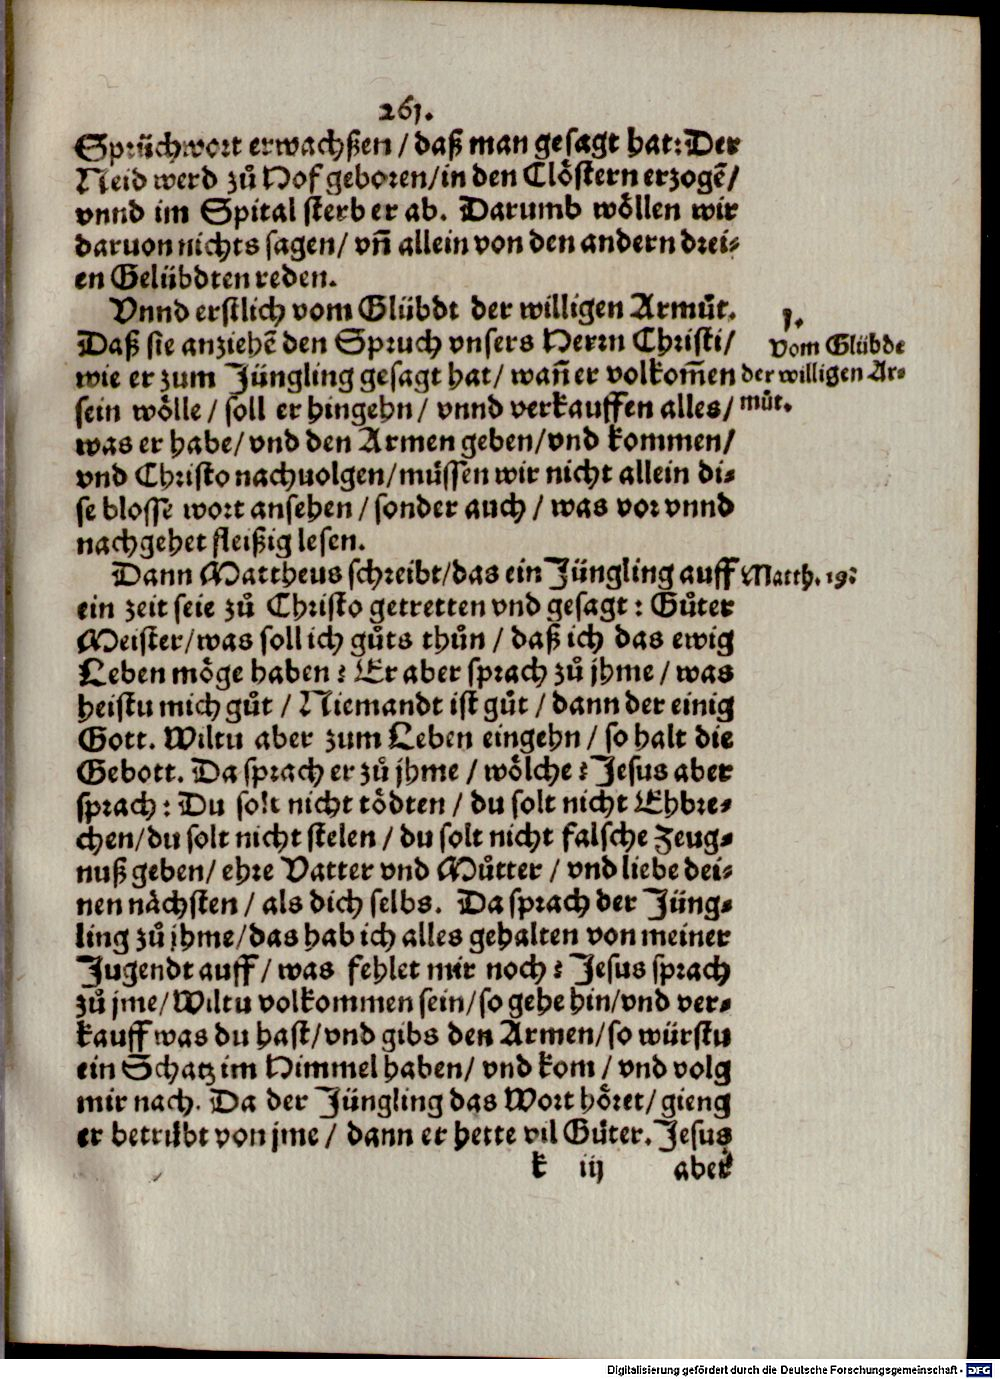 261.
Sprüchwort erwachßen / daß man gesagt hat: Der
Neid werd zů Hof geboren/in den Clöstern erzogẽ/
vnnd im Spital sterb er ab. Darumb wöllen wir
daruon nichts sagen/ vñ allein von den andern drei-
en Gelübdten reden.
Vnnd erstlich vom Glübdt der willigen Armůt.
1.
Daß sie anziehẽ den Spruch vnsers Herrn Christi/
Vom Glübde
wie er zum Jüngling gesagt hat/ wañ er volkom̃en
der willigen Ar-
sein wölle / soll er hingehn / vnnd verkauffen alles/
můt.
was er habe/ vnd den Armen geben/vnd kommen/
vnd Christo nachuolgen/müssen wir nicht allein di-
se blosse wort ansehen / sonder auch / was vor vnnd
nachgehet fleißig lesen.
Dann Mattheus schreibt/das ein Jüngling auff
Matth. 19:
ein zeit seie zů Christo getretten vnd gesagt : Gůter
Meister/was soll ich gůts thůn / daß ich das ewig
Leben möge haben ? Er aber sprach zů jhme / was
heistu mich gůt / Niemandt ist gůt / dann der einig
Gott. Wiltu aber zum Leben eingehn / so halt die
Gebott. Da sprach er zů jhme / wölche ? Jesus aber
sprach : Du solt nicht tödten / du solt nicht Ehbre-
chen/du solt nicht stelen / du solt nicht falsche Zeug-
nuß geben/ ehre Vatter vnd Můtter / vnd liebe dei-
nen nächsten / als dich selbs. Da sprach der Jüng-
ling zů jhme/das hab ich alles gehalten von meiner
Jugendt auff / was fehlet mir noch ? Jesus sprach
zů jme/ Wiltu volkommen sein/so gehe hin/vnd ver-
kauff was du hast/vnd gibs den Armen/so würstu
ein Schatz im Himmel haben/ vnd kom / vnd volg
mir nach. Da der Jüngling das Wort höret/ gieng
er betrübt von jme / dann er hette vil Güter. Jesus
k iij aber
Digitalisierung gefördert durch die Deutsche Forschungsgemeinschaft - DFG